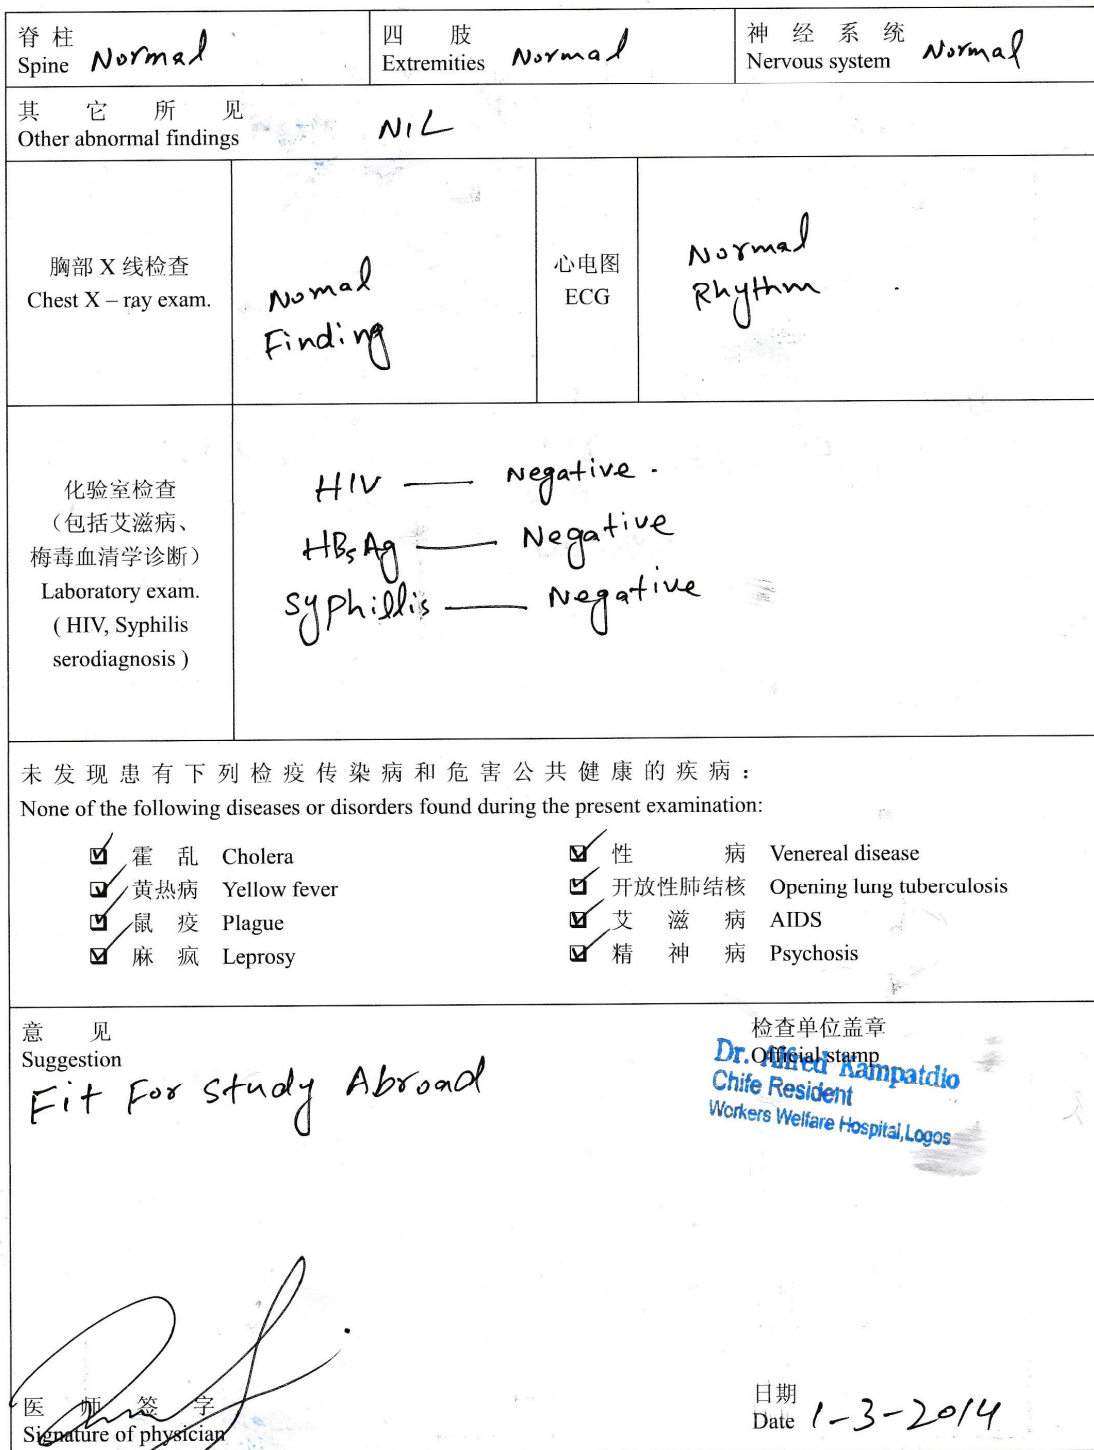 脊柱 四肢 神经系统
Spine Normal Extremities Normal Nervous system Normal
其它所见
Other abnormal findings NIL
胸部 X 线检查
Chest X – ray exam.
Nomal
Finding
心电图
ECG
Normal
Rhythm
化验室检查
（包括艾滋病、
梅毒血清学诊断）
Laboratory exam.
( HIV, Syphilis
serodiagnosis )
HIV — Negative .
HBsAg — Negative
Syphillis — Negative
未发现患有下列检疫传染病和危害公共健康的疾病：
None of the following diseases or disorders found during the present examination:
霍乱 Cholera 性病 Venereal disease
黄热病 Yellow fever 开放性肺结核 Opening lung tuberculosis
鼠疫 Plague 艾滋病 AIDS
麻疯 Leprosy 精神病 Psychosis
意见
Suggestion
Fit For Study Abroad
检查单位盖章
Official stamp
Dr. Alfred Kampatdio
Chife Resident
Workers Welfare Hospital, Logos
医师签字
Signature of physician
日期
Date 1-3-2014